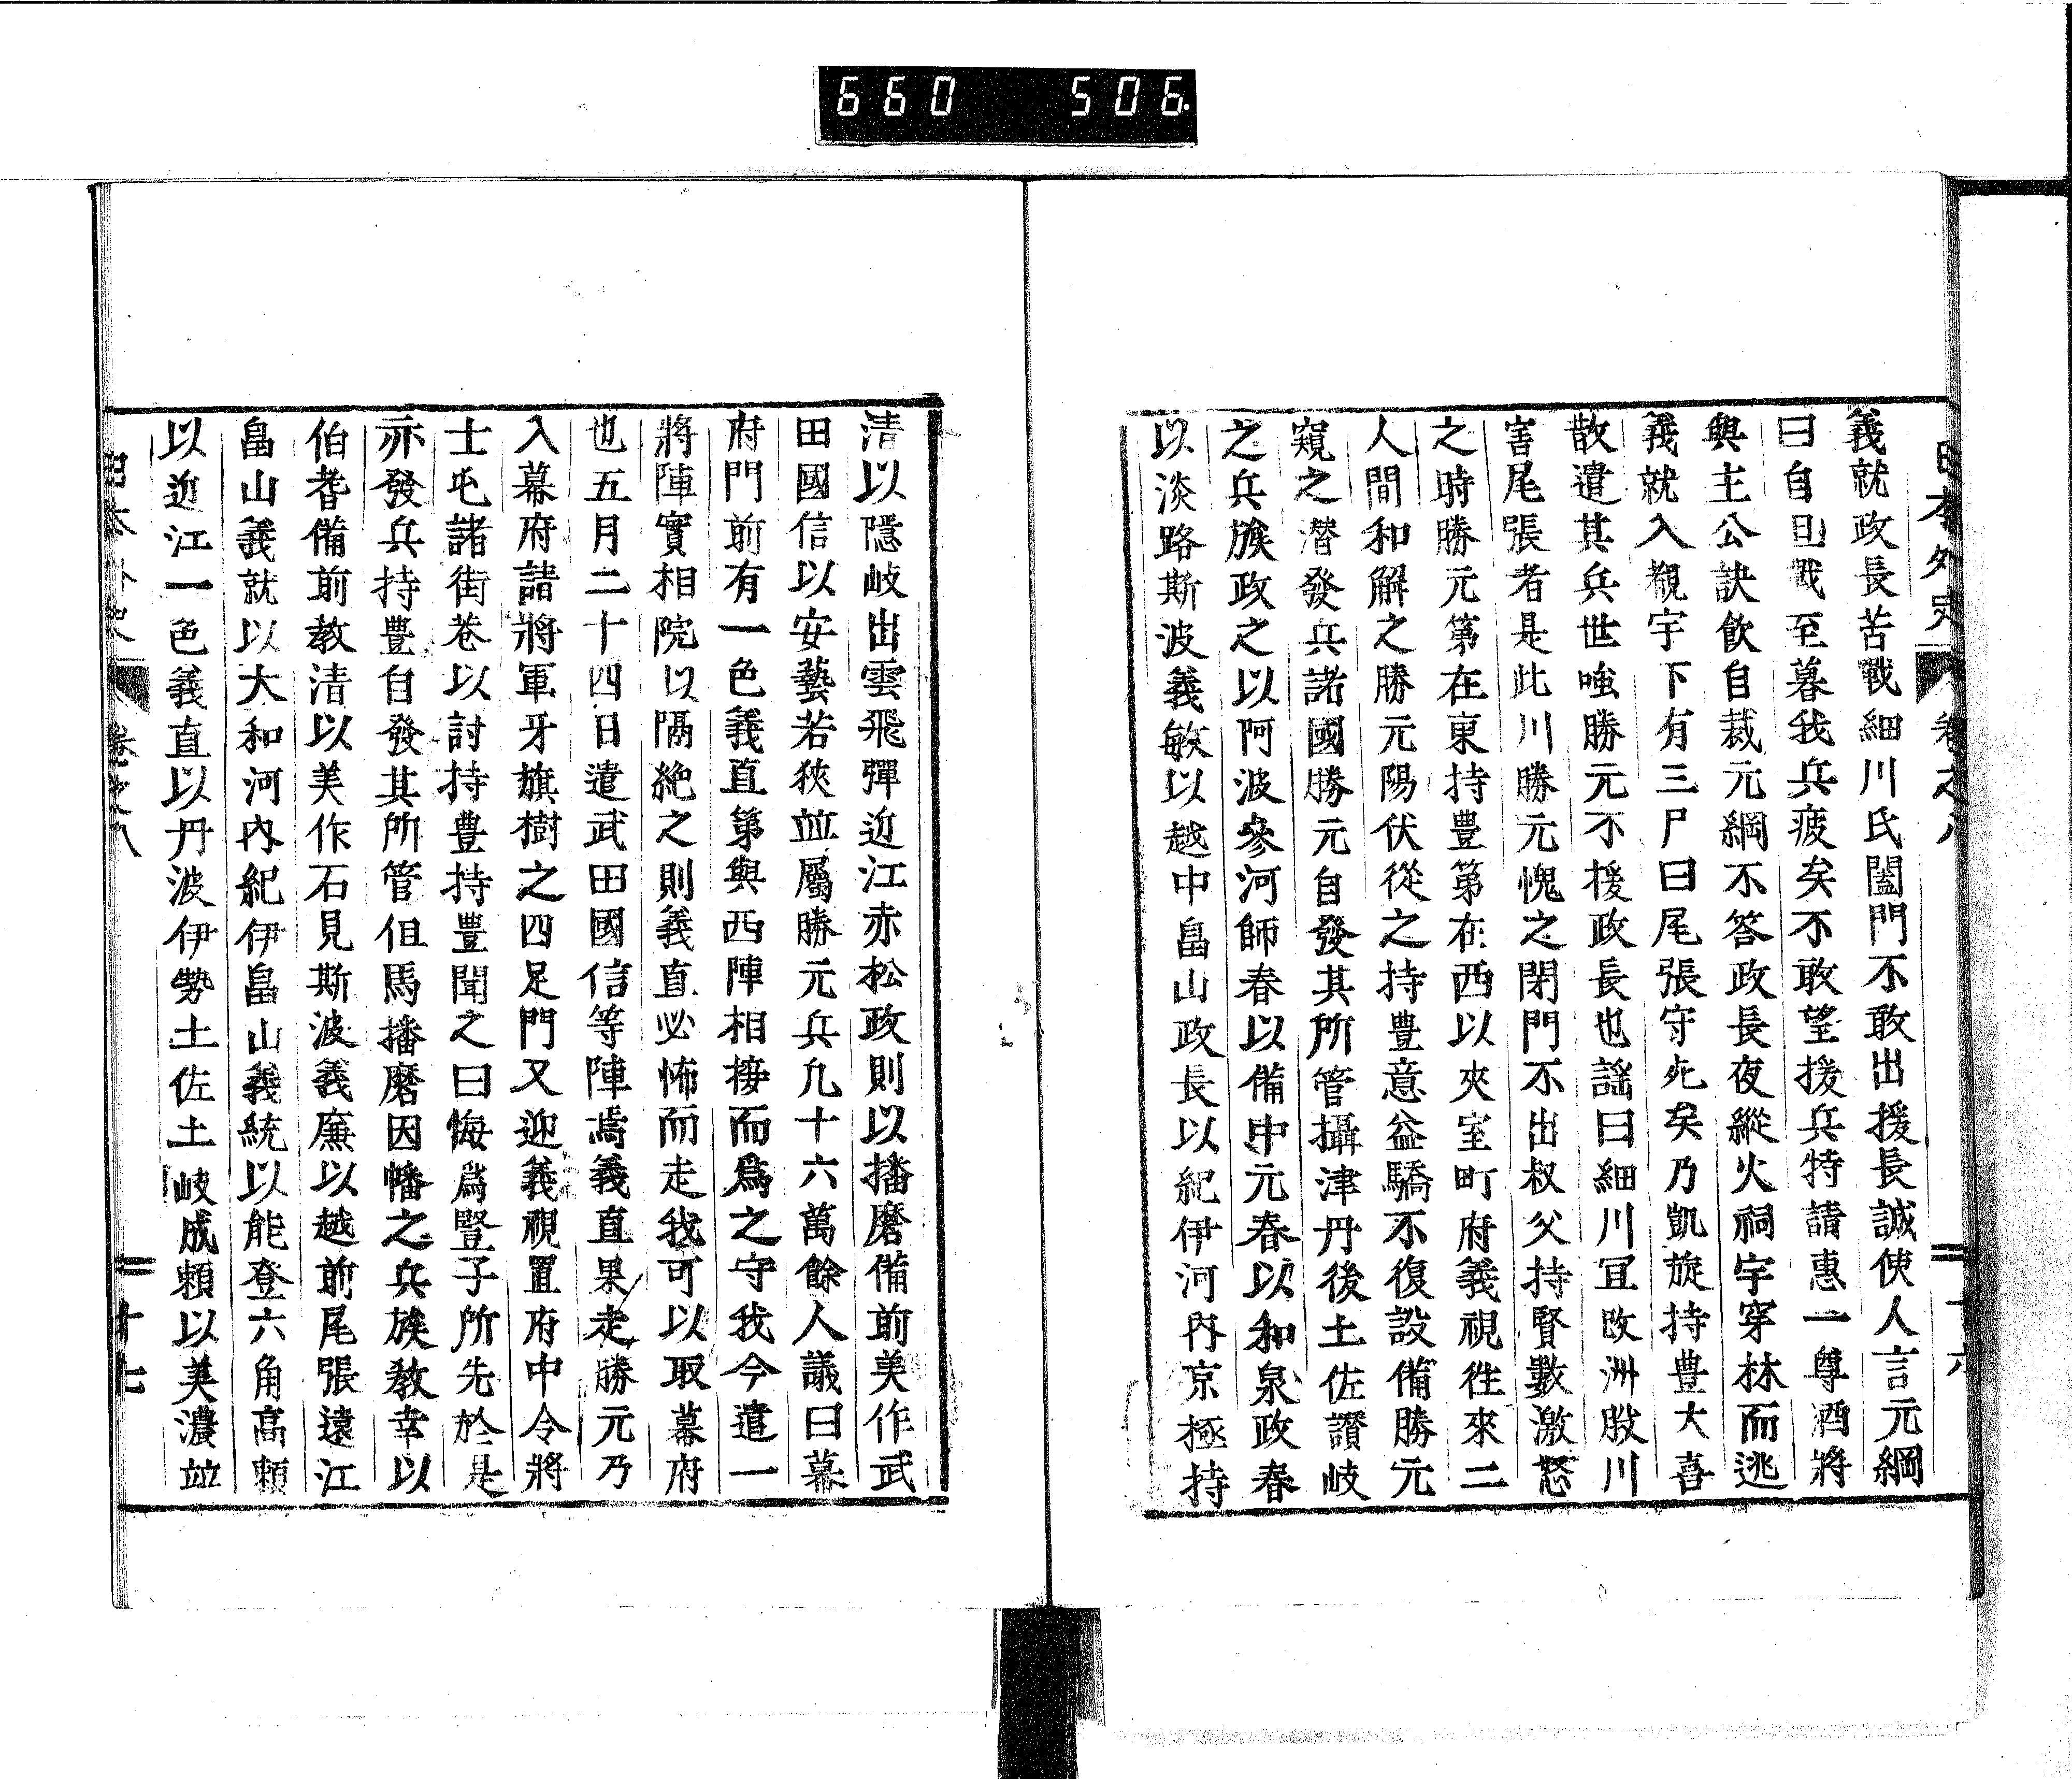 660 506
日本外史 卷之八 二十六
義就政長苦戰細川氏闔門不敢出援長誠使人言元綱
曰自旦戰至暮我兵疲矣不敢望援兵特請惠一尊酒將
與主公訣飲自裁元綱不答政長夜縱火祠宇穿林而逃
義就入覯宇下有三尸曰尾張守死矣乃凱旋持豊大喜
散遣其兵世嗤勝元不援政長也謡曰細川冝改洲股川
害尾張者是此川勝元愧之閉門不出叔父持賢數激怒
之時勝元第在東持豊第在西以夾室町府義視徃來二
人間和解之勝元陽伏從之持豊意益驕不復設備勝元
窺之潜發兵諸國勝元自發其所管攝津丹後土佐讃岐
之兵族政之以阿波參河師春以備中元春以和泉政春
以淡路斯波義敏以越中畠山政長以紀伊河內京極持
清以隱岐出雲飛彈近江赤松政則以播磨備前美作武
田國信以安藝若狹並屬勝元兵凢十六萬餘人議曰幕
府門前有一色義直第與西陣相接而爲之守我今遣一
將陣實相院以隔絶之則義直必怖而走我可以取幕府
也五月二十四日遣武田國信等陣焉義直果走勝元乃
入幕府請將軍牙旗樹之四足門又迎義視置府中令將
士屯諸街巷以討持豊持豊聞之曰悔爲豎子所先於是
亦發兵持豊自發其所管但馬播磨因幡之兵族敎幸以
伯耆備前敎清以美作石見斯波義廉以越前尾張遠江
畠山義就以大和河內紀伊畠山義統以能登六角高頼
以近江一色義直以丹波伊勢土佐土岐成頼以美濃並
日本外史 卷之八 二十七